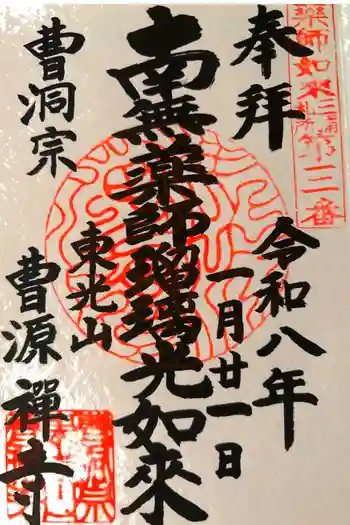 奉拝
令和八年
一月廿一日
南無薬師瑠璃光如來
東光山
曹洞宗
曹源禪寺
薬師如来
第三番